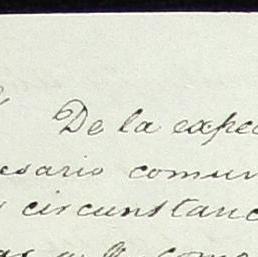 De la expec
esario comun
circunstanc